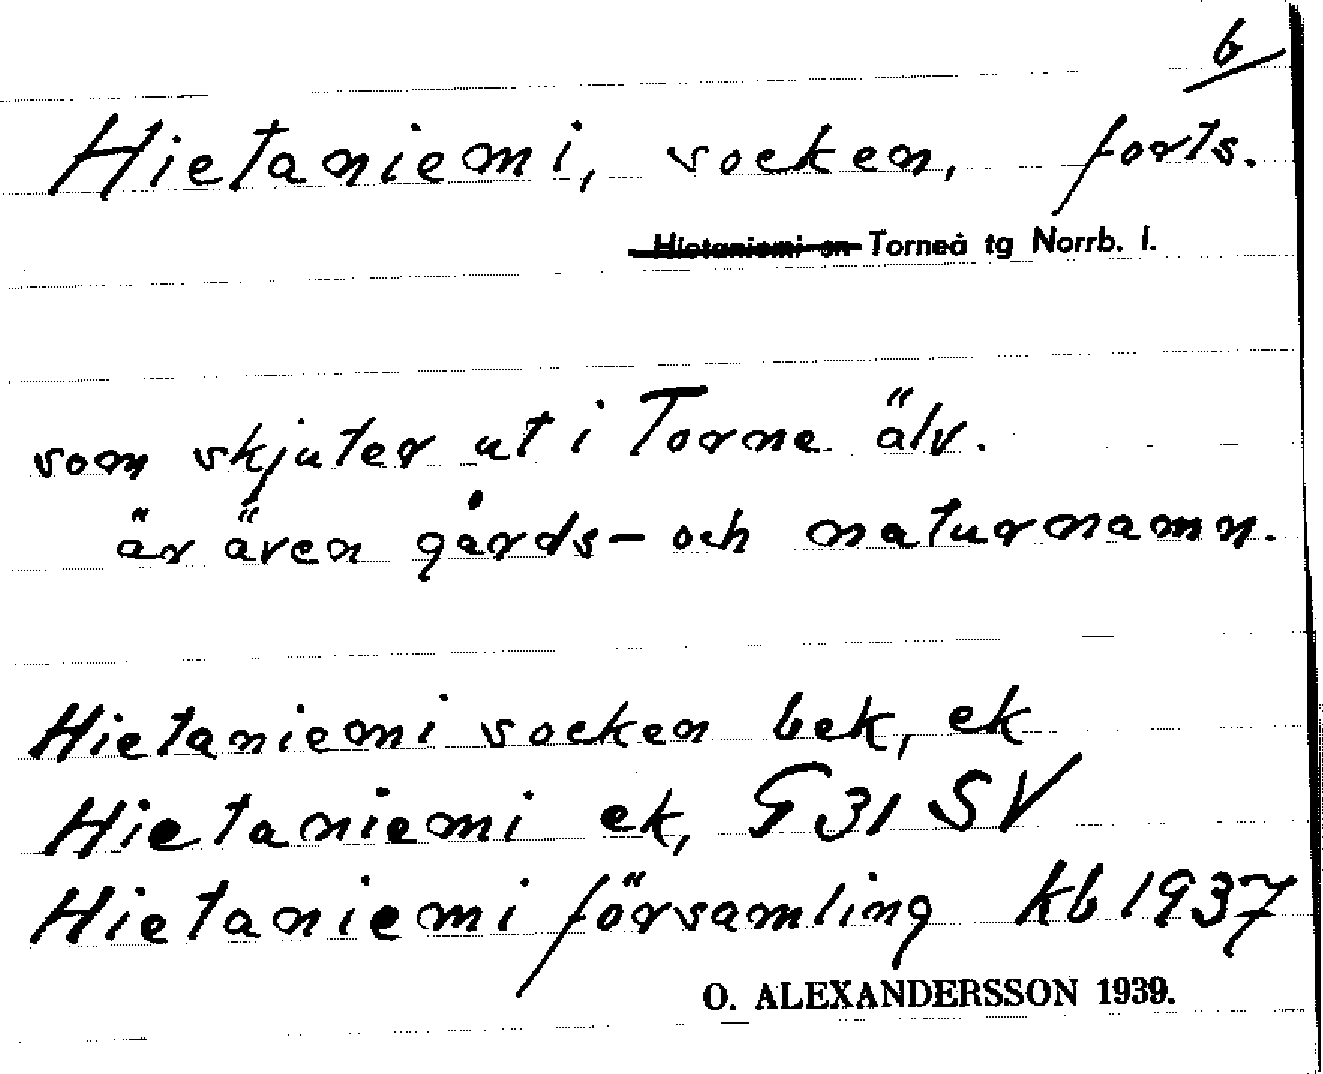 6
Hietaniemi, socken, forts.
Hietaniemi sn Torneå tg Norrb. l.
som skjuter ut i Torne älv.
är även gårds- och naturnamn.
Hietaniemi socken bek, ek
Hietaniemi ek, G 31 SV
Hietaniemi församling kb 1937
O. ALEXANDERSSON 1939.